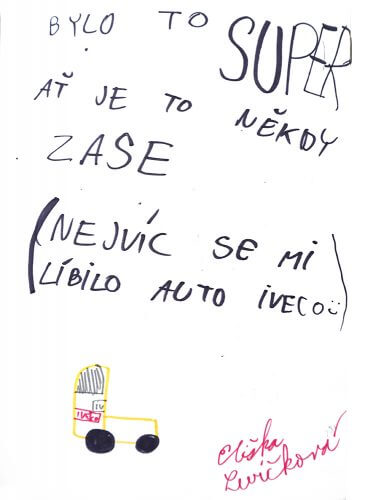 BYLO TO SUPER
AŤ JE TO NĚKDY
ZASE
(NEJVÍC SE MI
LÍBILO AUTO IVECO)
IV
IVECO
Eliška